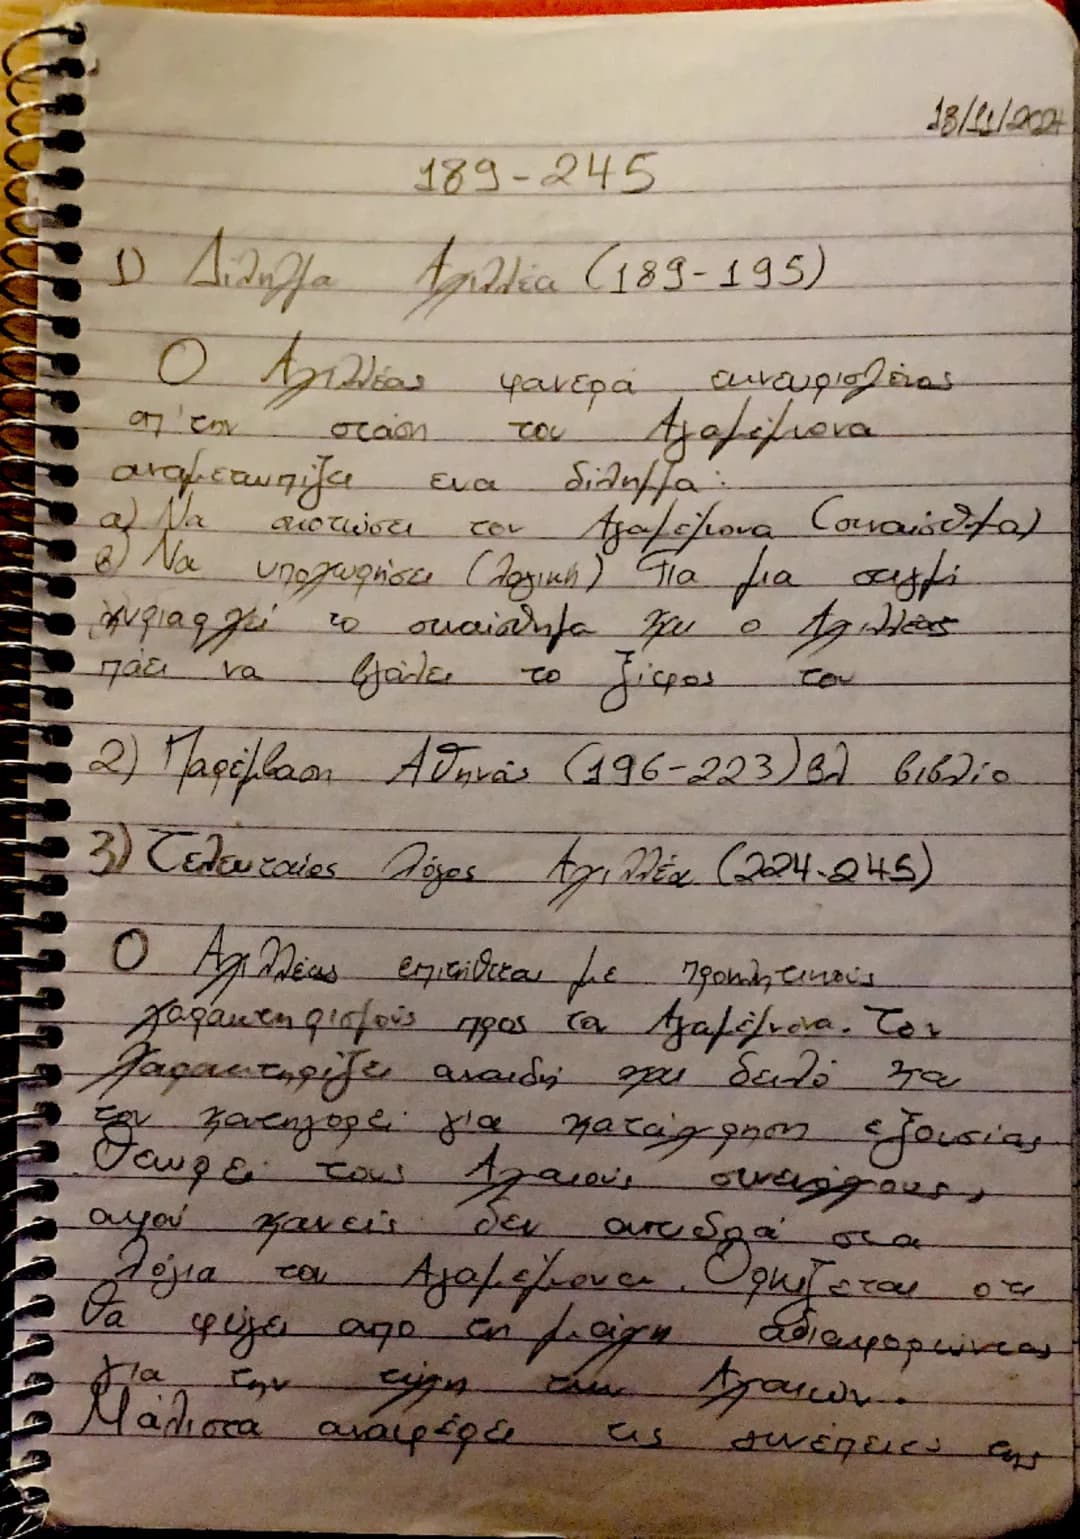 18/11/2024
189-245
1) Δίλημμα Αχιλλέα (189-195)
Ο Αχιλλέας φανερά εκνευρισμένος
απ'την στάση του Αγαμέμνονα
αναμετωπίζει ενα δίλημμα:
α) Να σκοτώσει τον Αγαμέμνονα (συναίσθημα)
β) Να υποχωρήσει (λογική) Για μια στιγμή
κυριαρχεί το συναίσθημα και ο Αχιλλέας
πάει να βγάλει το ξίφος του
2) Παρέμβαση Αθηνάς (196-223) βλ βιβλίο
3) Τελευταίος λόγος Αχιλλέα (224-245)
Ο Αχιλλέας επιτίθεται με προκλητικούς
χαρακτηρισμούς προς τον Αγαμέμνονα. Τον
χαρακτηρίζει αναιδή και δειλό και
τον κατηγορεί για κατάχρηση εξουσίας
Θεωρεί τους Αχαιούς συνενόχους,
αφού κανείς δεν αντιδρά στα
λόγια του Αγαμέμνονα. Ορκίζεται οτι
θα φύγει απο τη μάχη αδιαφορώντας
για την τύχη των Αχαιών.
Μάλιστα αναφέρει τις συνέπειες της